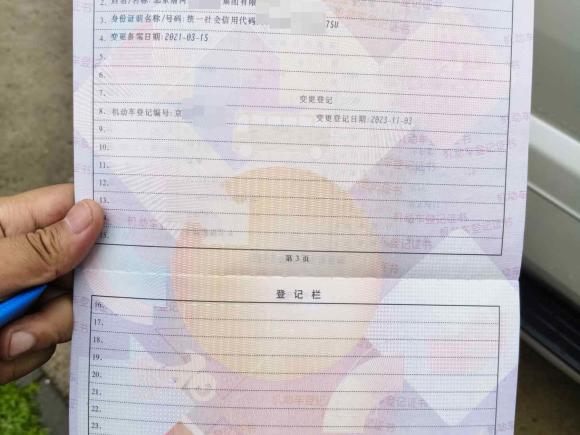 2. 姓名/名称: 北京 集团有限
3. 身份证明名称/号码: 统一社会信用代码 75U
4. 变更备案日期: 2021-03-15
5.
6.
7. 变更登记
8. 机动车登记编号: 京 变更登记日期: 2023-11-03
9.
10.
11.
12.
13.
14.
15.
第 3 页
登 记 栏
16.
17.
18.
19.
20.
21.
22.
23.